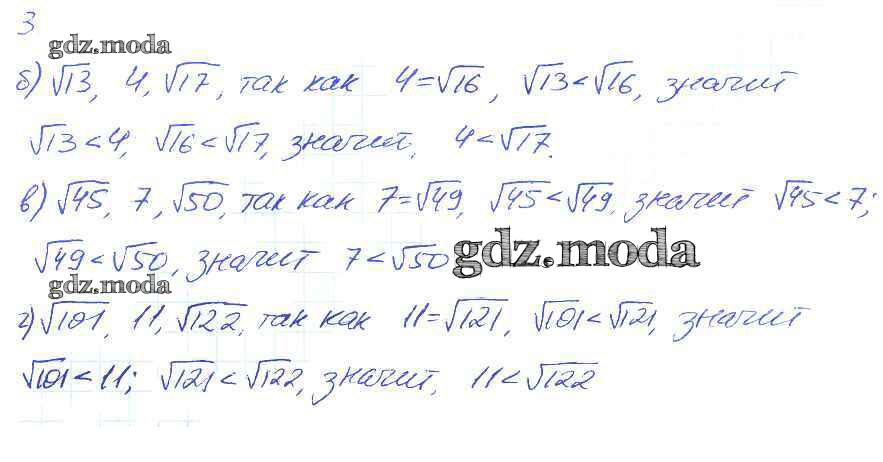 3
gdz.moda
б) √13, 4, √17, так как 4=√16, √13<√16, значит
√13<4, √16<√17, значит, 4<√17.
в) √45, 7, √50, так как 7=√49, √45<√49, значит √45<7;
√49<√50, значит 7<√50 gdz.moda
gdz.moda
г) √101, 11, √122, так как 11=√121, √101<√121, значит
√101<11; √121<√122, значит, 11<√122